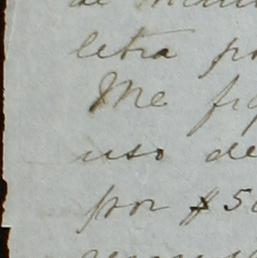 de
letra p
Me fig
uso de
por $50